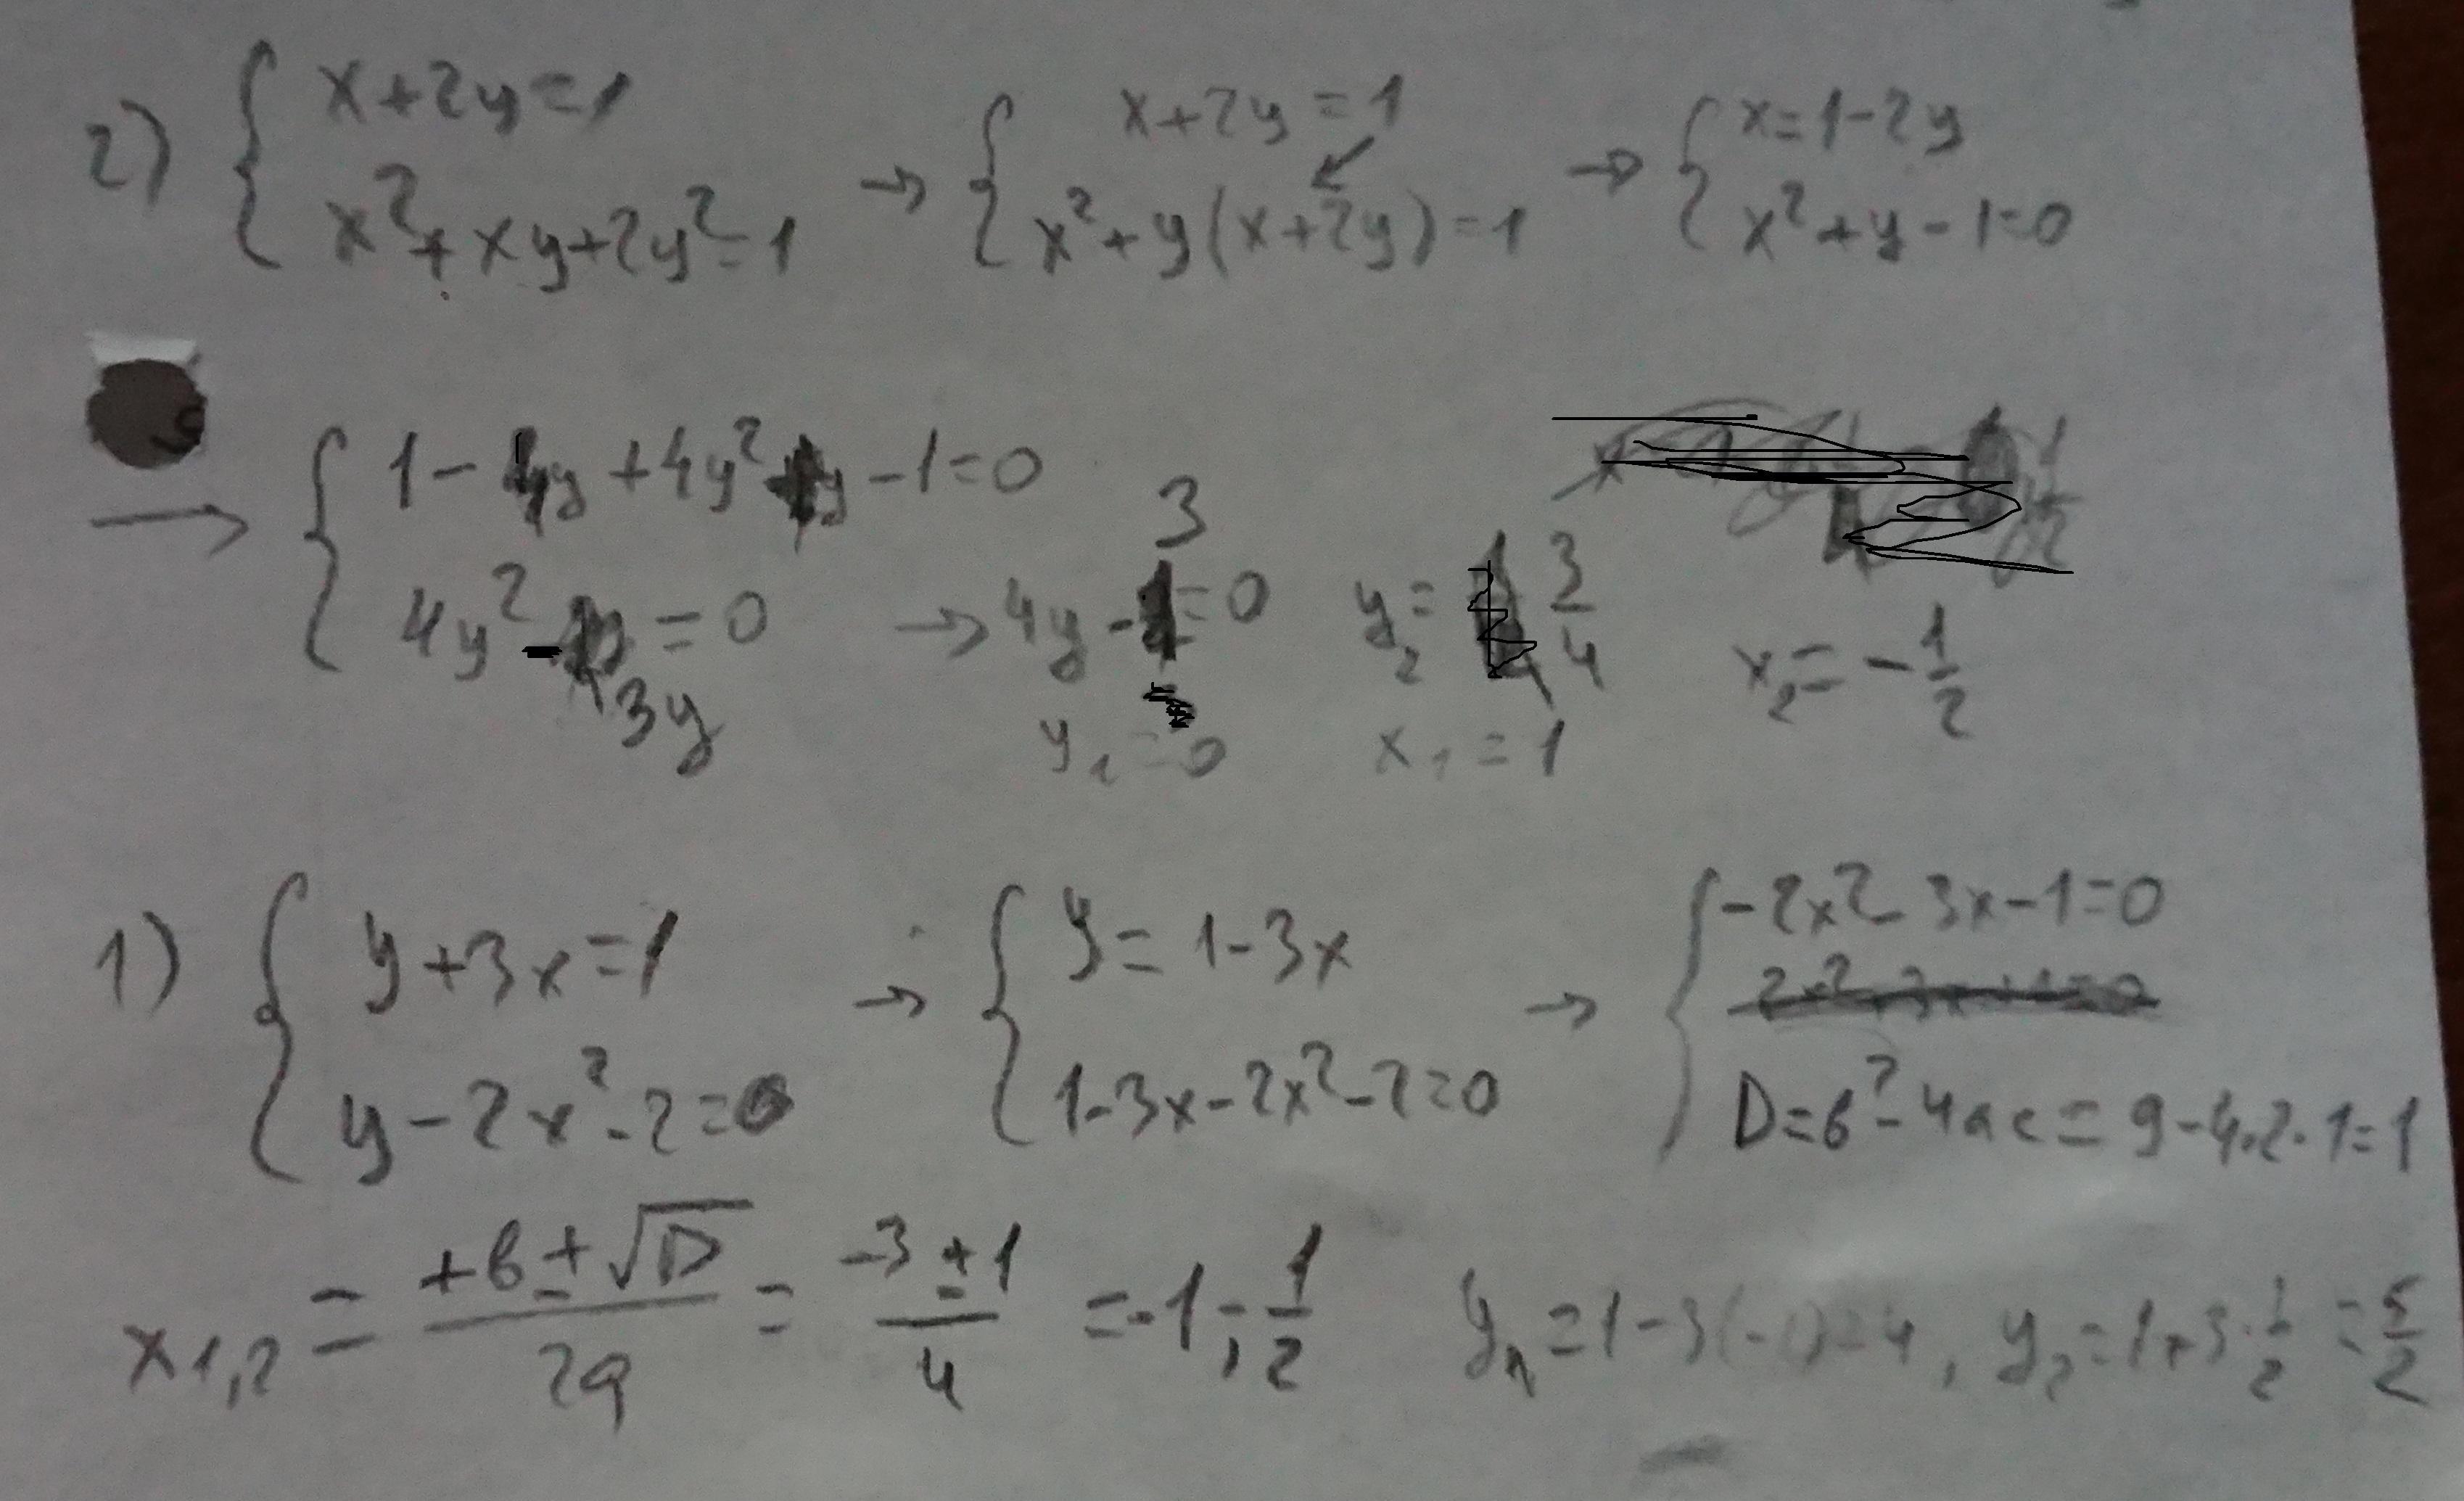 2) { x+2y=1 → { x+2y=1 → { x=1-2y
x²+xy+2y²=1 x²+y(x+2y)=1 x²+y-1=0
→ { 1-4y+4y²+y-1=0
4y²-3y=0 → 4y-3=0 y₂=3/4 x₂=-1/2
y₁=0 x₁=1
1) { y+3x=1 → { y=1-3x → { -2x²-3x-1=0
y-2x²-2=0 1-3x-2x²-2=0 D=b²-4ac=9-4·2·1=1
x₁,₂ = (+b±√D)/2a = (-3±1)/4 =-1;-1/2 y₁=1-3(-1)=4, y₂=1+3·1/2=5/2